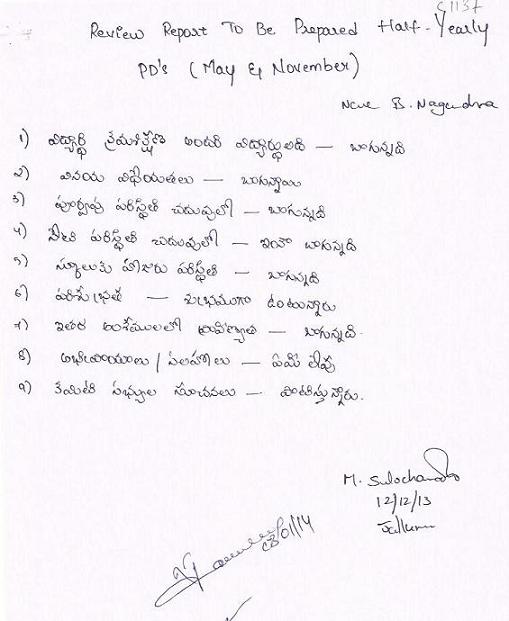 C1137
Review Report To Be Prepared Half-Yearly
PD's (May & November)
Name B. Nagendra
1) విద్యార్థి క్రమశిక్షణ అందరి విద్యార్థులది — బాగున్నది
2) వినయ విధేయతలు — బాగున్నాయి
3) పూర్వపు పరిస్థితి చదువులో — బాగున్నది
4) నేటి పరిస్థితి చదువులో — ఇంకా బాగున్నది
5) స్కూలుకు హాజరు పరిస్థితి — బాగున్నది
6) పరిశుభ్రత — శుభ్రముగా ఉంటున్నారు
7) ఇతర అంశములలో ప్రావీణ్యత — బాగున్నది.
8) అభిప్రాయాలు / సలహాలు — ఏమి లేవు
9) కమిటీ సభ్యుల సూచనలు — పాటిస్తున్నారు.
M. Sulochana
12/12/13
03/01/14